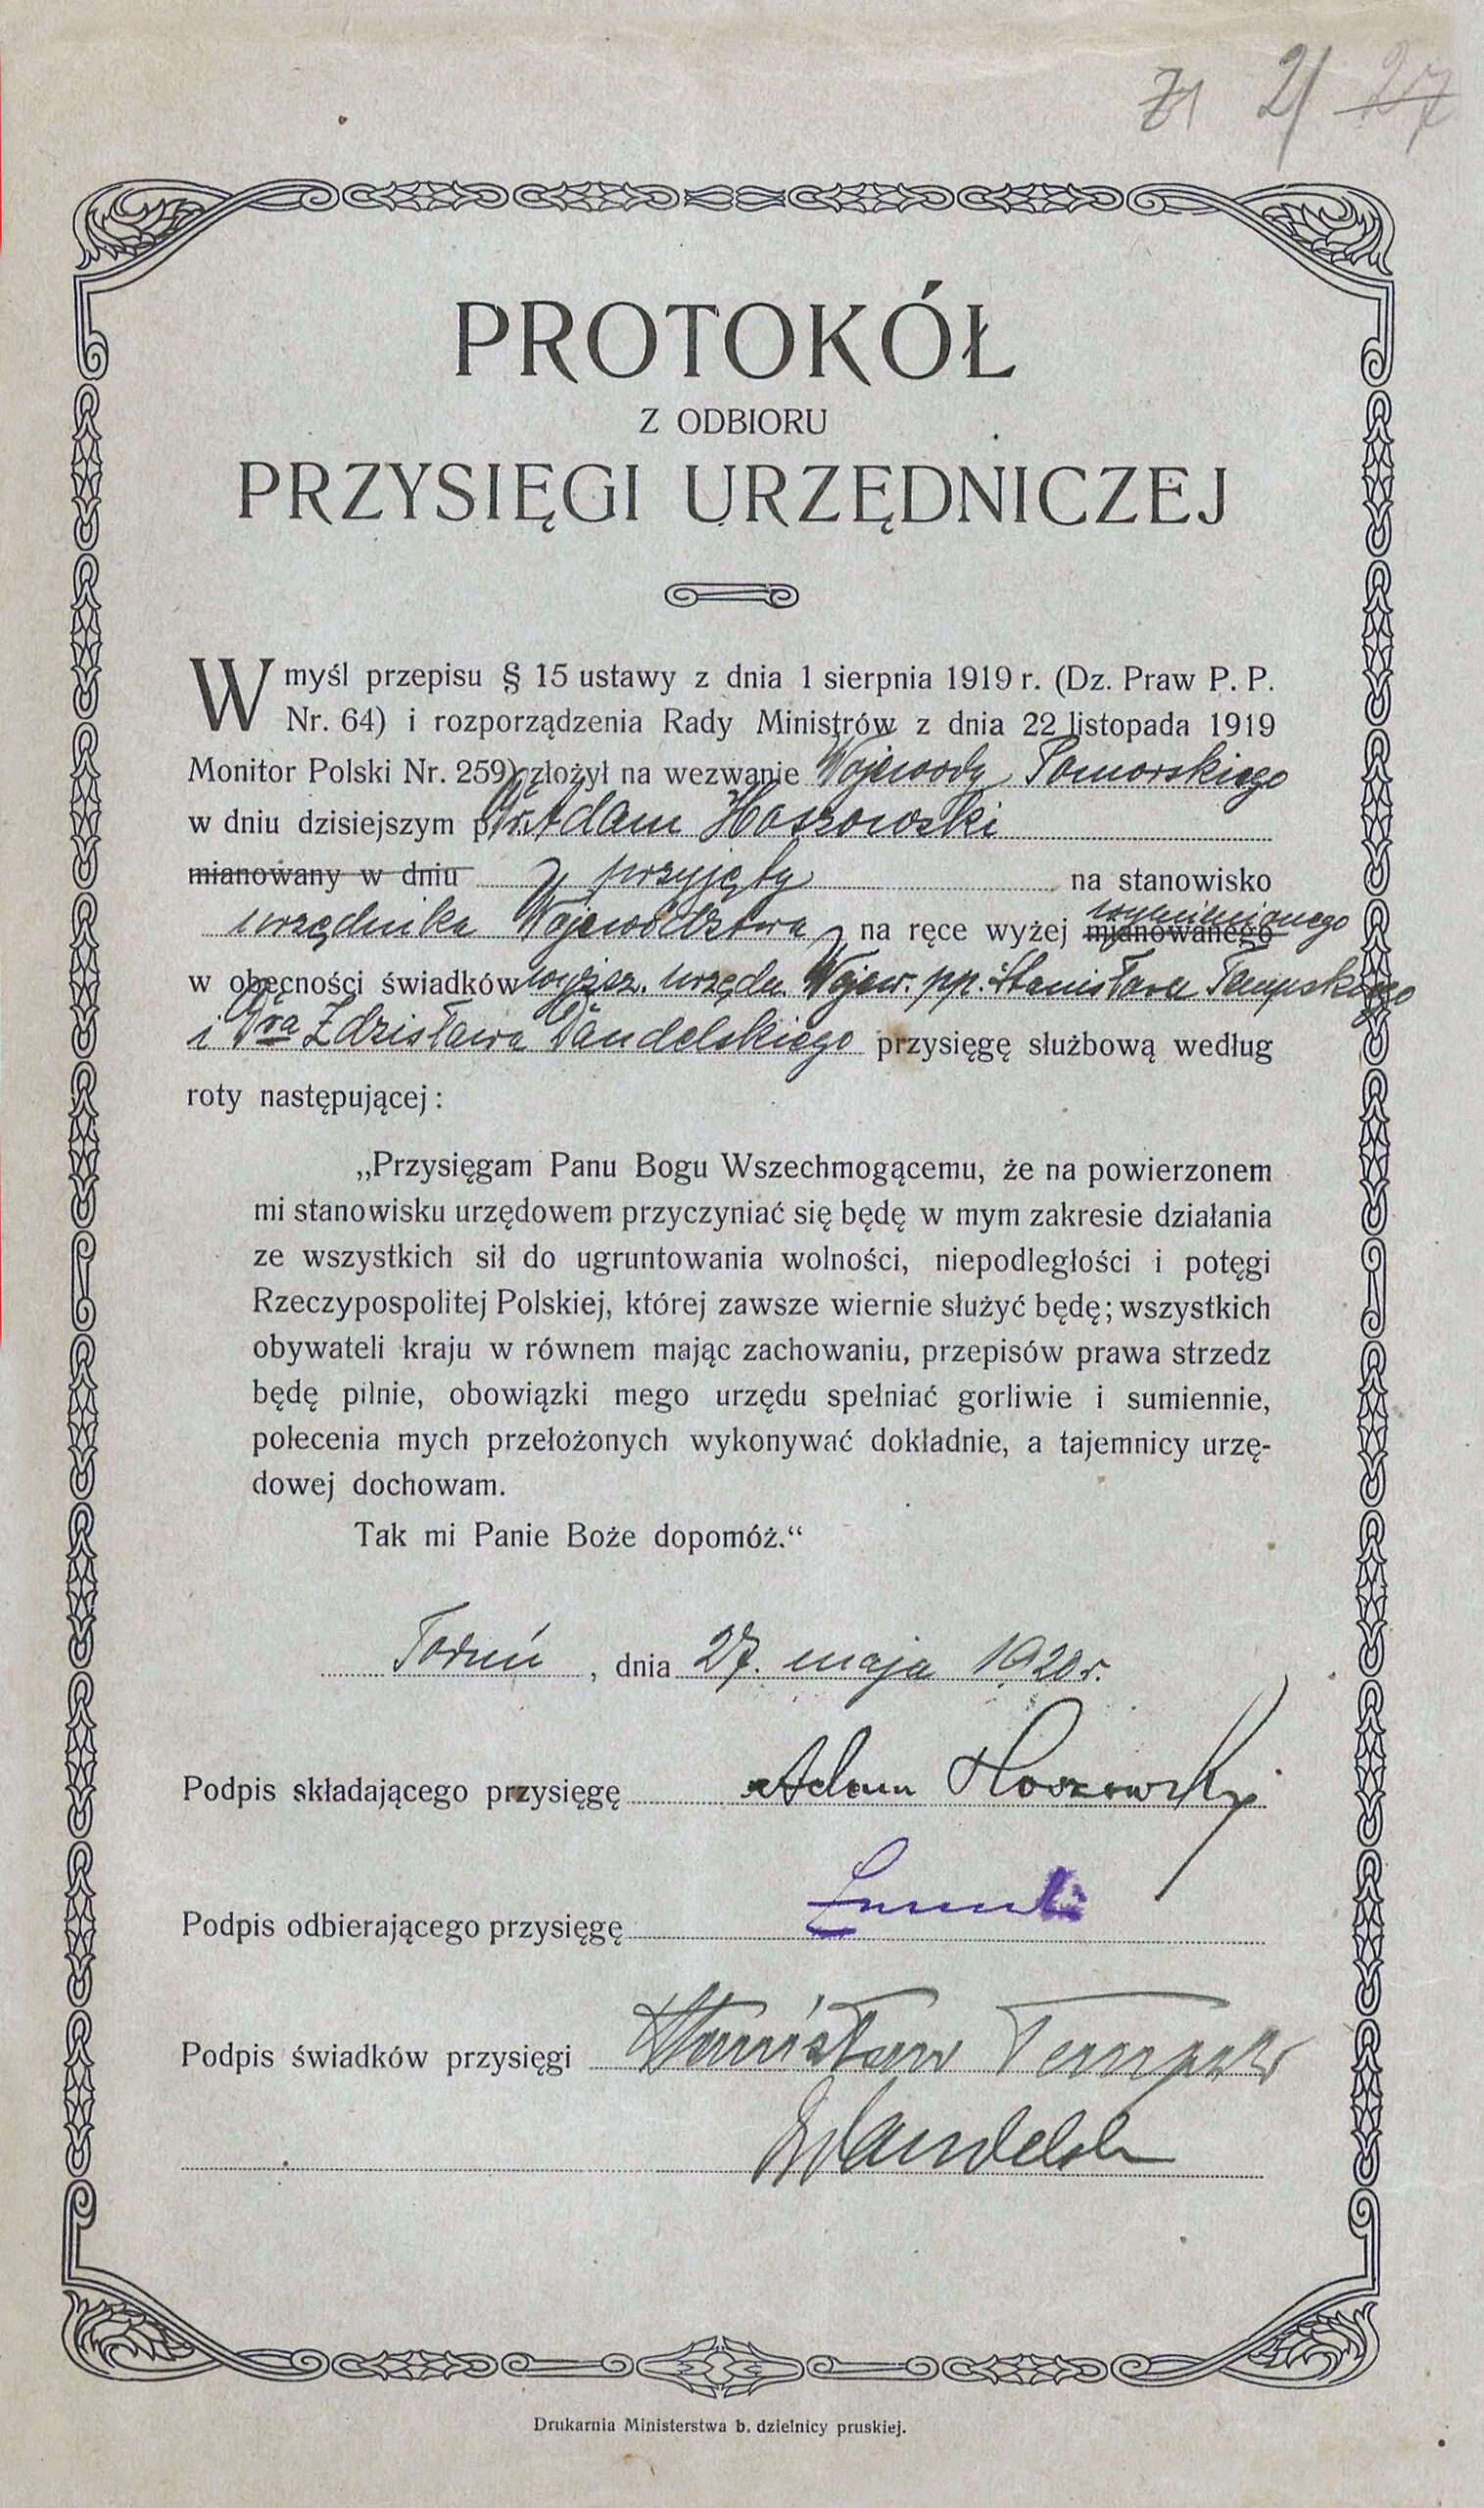 21 2/ 27
PROTOKÓŁ
Z ODBIORU
PRZYSIĘGI URZĘDNICZEJ
W myśl przepisu § 15 ustawy z dnia 1 sierpnia 1919 r. (Dz. Praw P. P.
Nr. 64) i rozporządzenia Rady Ministrów z dnia 22 listopada 1919
Monitor Polski Nr. 259) złożył na wezwanie Wojewody Pomorskiego
w dniu dzisiejszym p. Dr. Adam Hoszowski
mianowany w dniu przyjęty na stanowisko
urzędnika Województwa na ręce wyżej mianowanego wymienionego
w obecności świadków wyższ. urzędn. Wojew. pp. Stanisława Tempskiego
i Dra Zdzisława Dandelskiego przysięgę służbową według
roty następującej:
„Przysięgam Panu Bogu Wszechmogącemu, że na powierzonem
mi stanowisku urzędowem przyczyniać się będę w mym zakresie działania
ze wszystkich sił do ugruntowania wolności, niepodległości i potęgi
Rzeczypospolitej Polskiej, której zawsze wiernie służyć będę; wszystkich
obywateli kraju w równem mając zachowaniu, przepisów prawa strzedz
będę pilnie, obowiązki mego urzędu spełniać gorliwie i sumiennie,
polecenia mych przełożonych wykonywać dokładnie, a tajemnicy urzę-
dowej dochowam.
Tak mi Panie Boże dopomóż.“
Toruń, dnia 27. maja 1920 r.
Podpis składającego przysięgę Adam Hoszowski
Podpis odbierającego przysięgę
Podpis świadków przysięgi Stanisław Tempski
Drukarnia Ministerstwa b. dzielnicy pruskiej.